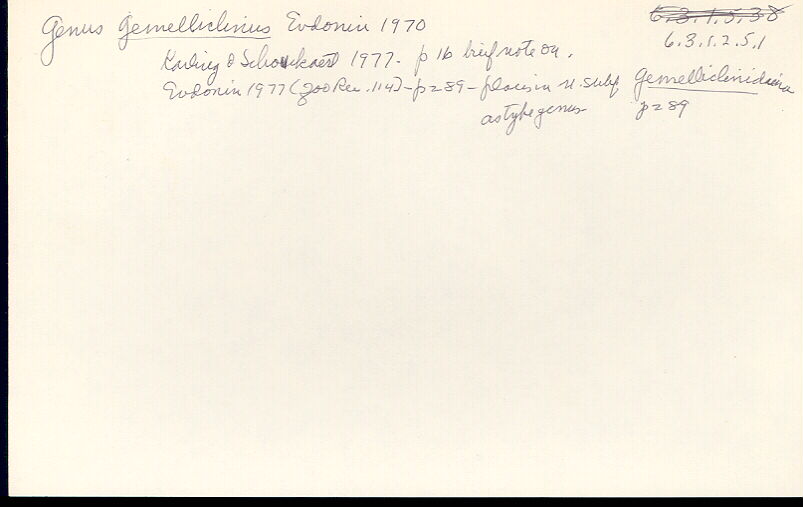 Genus Gemelliclinus Evdonin 1970
6.3.1.5.38
6.3.1.2.5.1
Karling & Schockaert 1977. p 16 brief note on.
Evdonin 1977 (Zoo Rec. 114) - p 289 - places in n. subf. Gemelliclinidiina
as type genus p 289